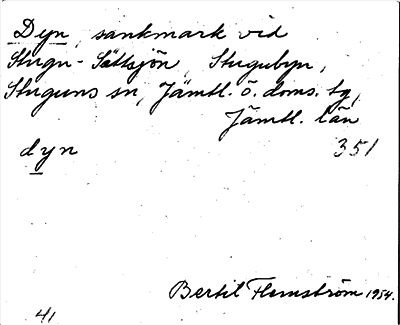 Dyn, sankmark vid
Stugu-Sättsjön, Stugubyn,
Stuguns sn, Jämtl. ö. doms. tg,
Jämtl. län
dyn 351
Bertil Flemström 1954.
41